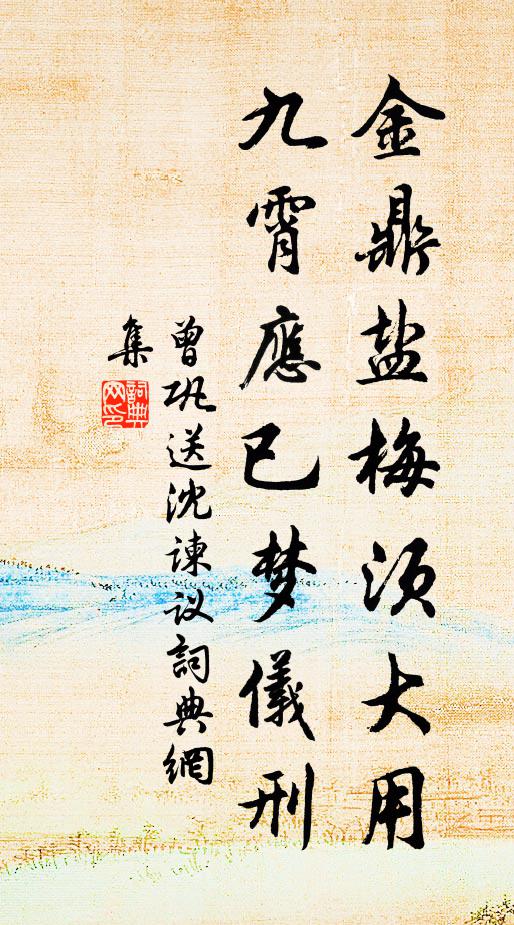 金鼎盐梅须大用
九霄應已梦儀刑
曾巩送沈谏议詞典網
集
詞典網印